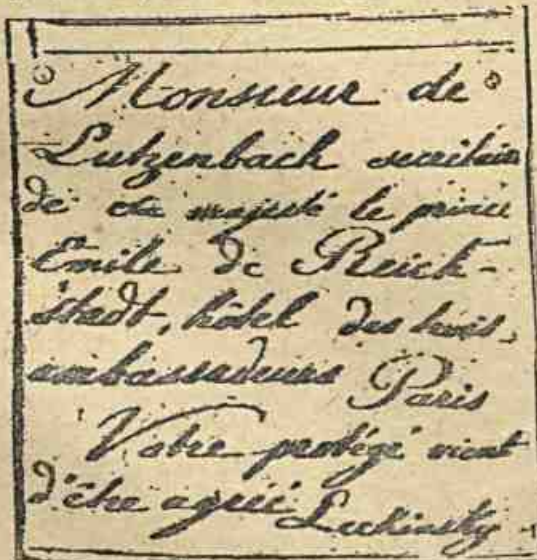 Monsieur de
Lutzenbach secrétaire
de sa majesté le prince
Emile de Reich-
stadt, hôtel des trois
ambassadeurs Paris
Votre protégé vient
d'être agréé Leckinsky